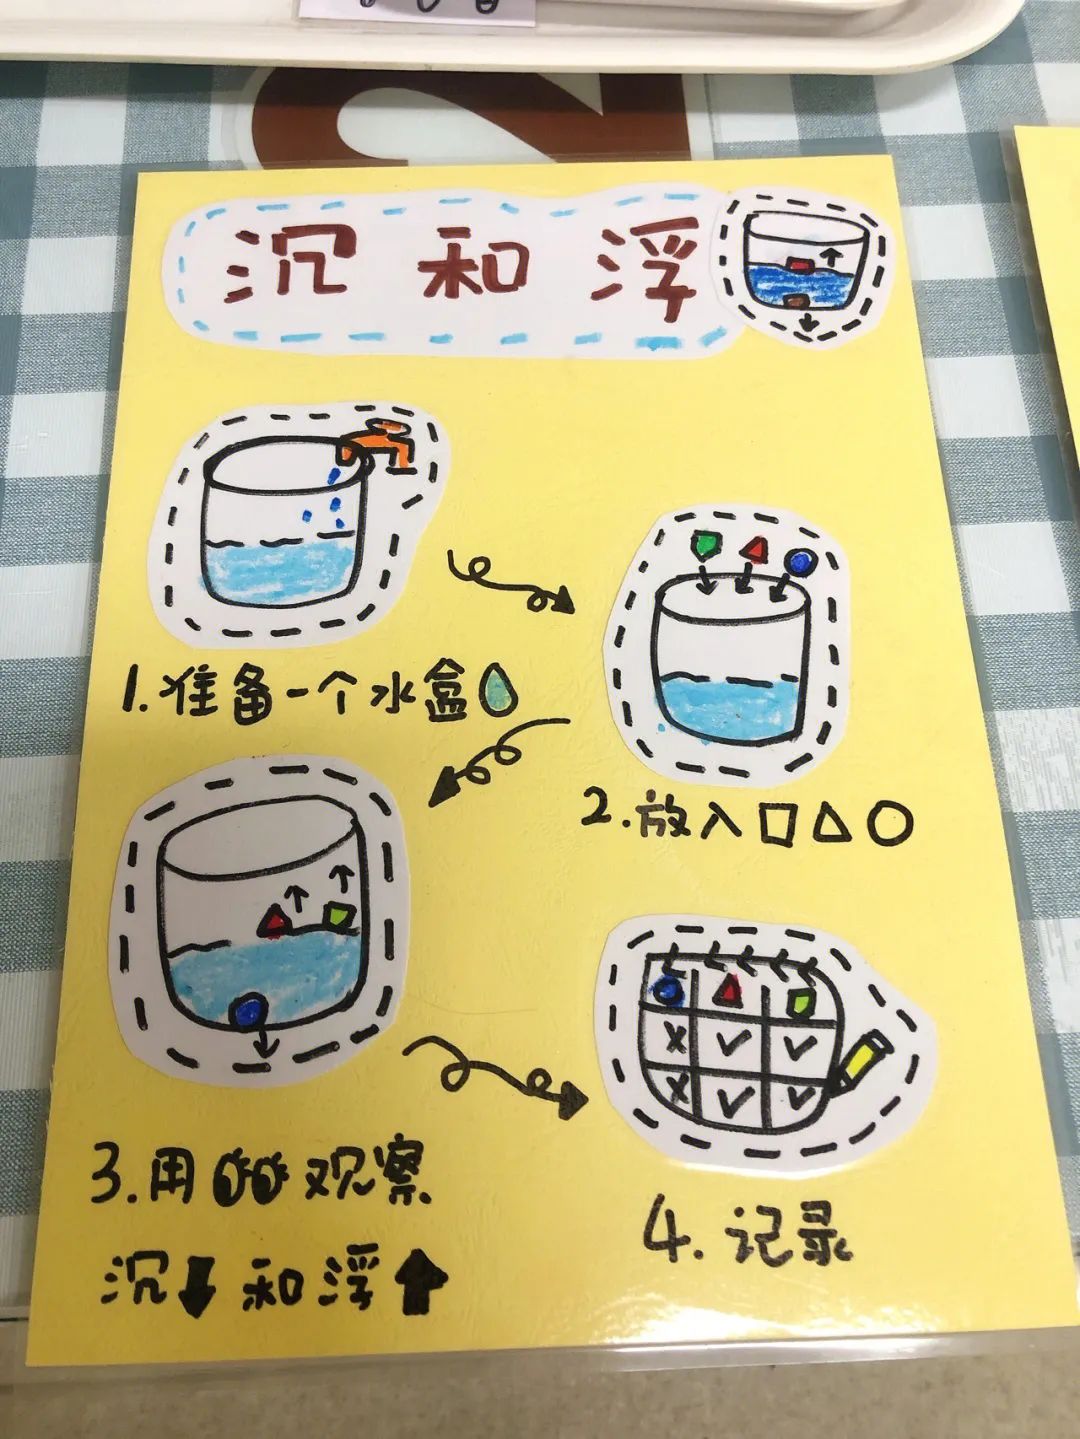 沉和浮
1.准备一个水盒
2.放入□△○
3.用观察
沉⬇和浮⬆
4.记录